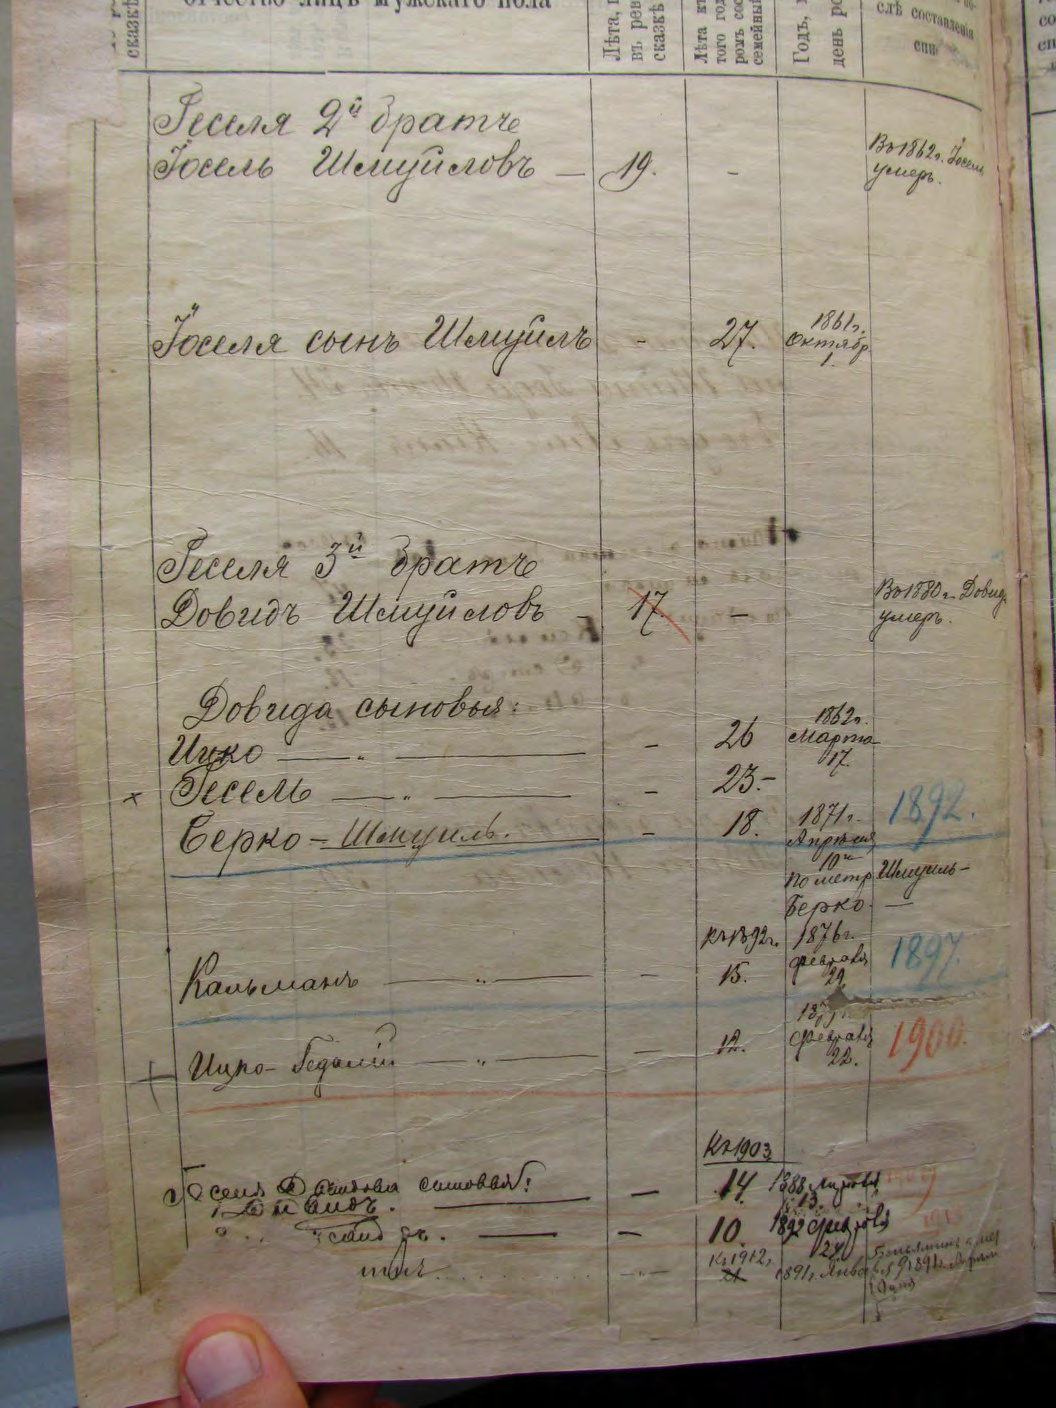 отчество лицъ мужскаго пола
сказкѣ
Лѣта,
въ рев
сказкѣ
Лѣта
того год
ромъ сос
семейный
Годъ,
день ро
слѣ составленія
спи
Геселя 2й братъ
Іосель Шмуйловъ — 19. -
Въ 1862 г. Іосель
умеръ.
Іоселя сынъ Шмуйлъ - 27. 1861 г.
октябр
1.
Геселя 3й братъ
Довидъ Шмуйловъ - 17. —
Въ 1880 г. Довидъ
умеръ.
Довида сыновья:
Ицко — „ — - 26 1862 г.
Марта
17.
× Гесель — „ — - 23.-
Берко - Шмуиль. - 18. 1871 г. 1892.
Апрѣля
10го
по метр Шмуиль-
Берко —
Къ 1892 г. 1876 г.
Кальманъ — „ — - 15. февраля 1897.
29
Ицко-Гедалій „ — - 12. февраля 1900.
22.
Къ 1903
Геселя Давидова сыновья:
Давидъ. — - 14. 1888
13.
— 10. 1892 февраля
24
Къ 1912 г.
21 1891 г. Янв